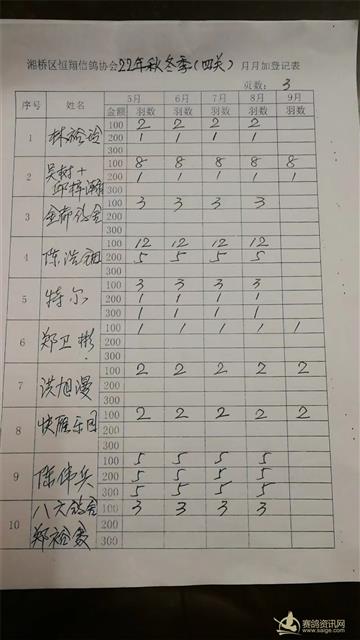 湘桥区恒翔信鸽协会22年秋冬季(四关)月月加登记表
页数: 3
序号 姓名 5月 6月 7月 8月 9月
金额 羽数 羽数 羽数 羽数 羽数
1 林裕 100 2 2 2 2
200 1 1 1 1
300
2 吴树+ 100 8 8 8 8 8
邱梓 200 1 1 1 1 1
300
3 金都鸽舍 100 3 3 3 3
200
300
4 陈浩 100 12 12 12 12
200 5 5 5 5
300
5 特尔 100 3 3 3 3
200 1 1 1 1
300 1 1 1 1
6 郑卫彬 100 1 1 1 1 1
200
300
7 洪旭漫 100 2 2 2 2 2
200
300
8 快雁乐园 100 2 2 2 2 2
200
300
9 陈伟兵 100 5 5 5 5
200 5 5 5 5
300 5 5 5 5
10 八六鸽舍 100 3 3 3 3
郑裕 200
300
赛鸽资讯网
www.saige.com